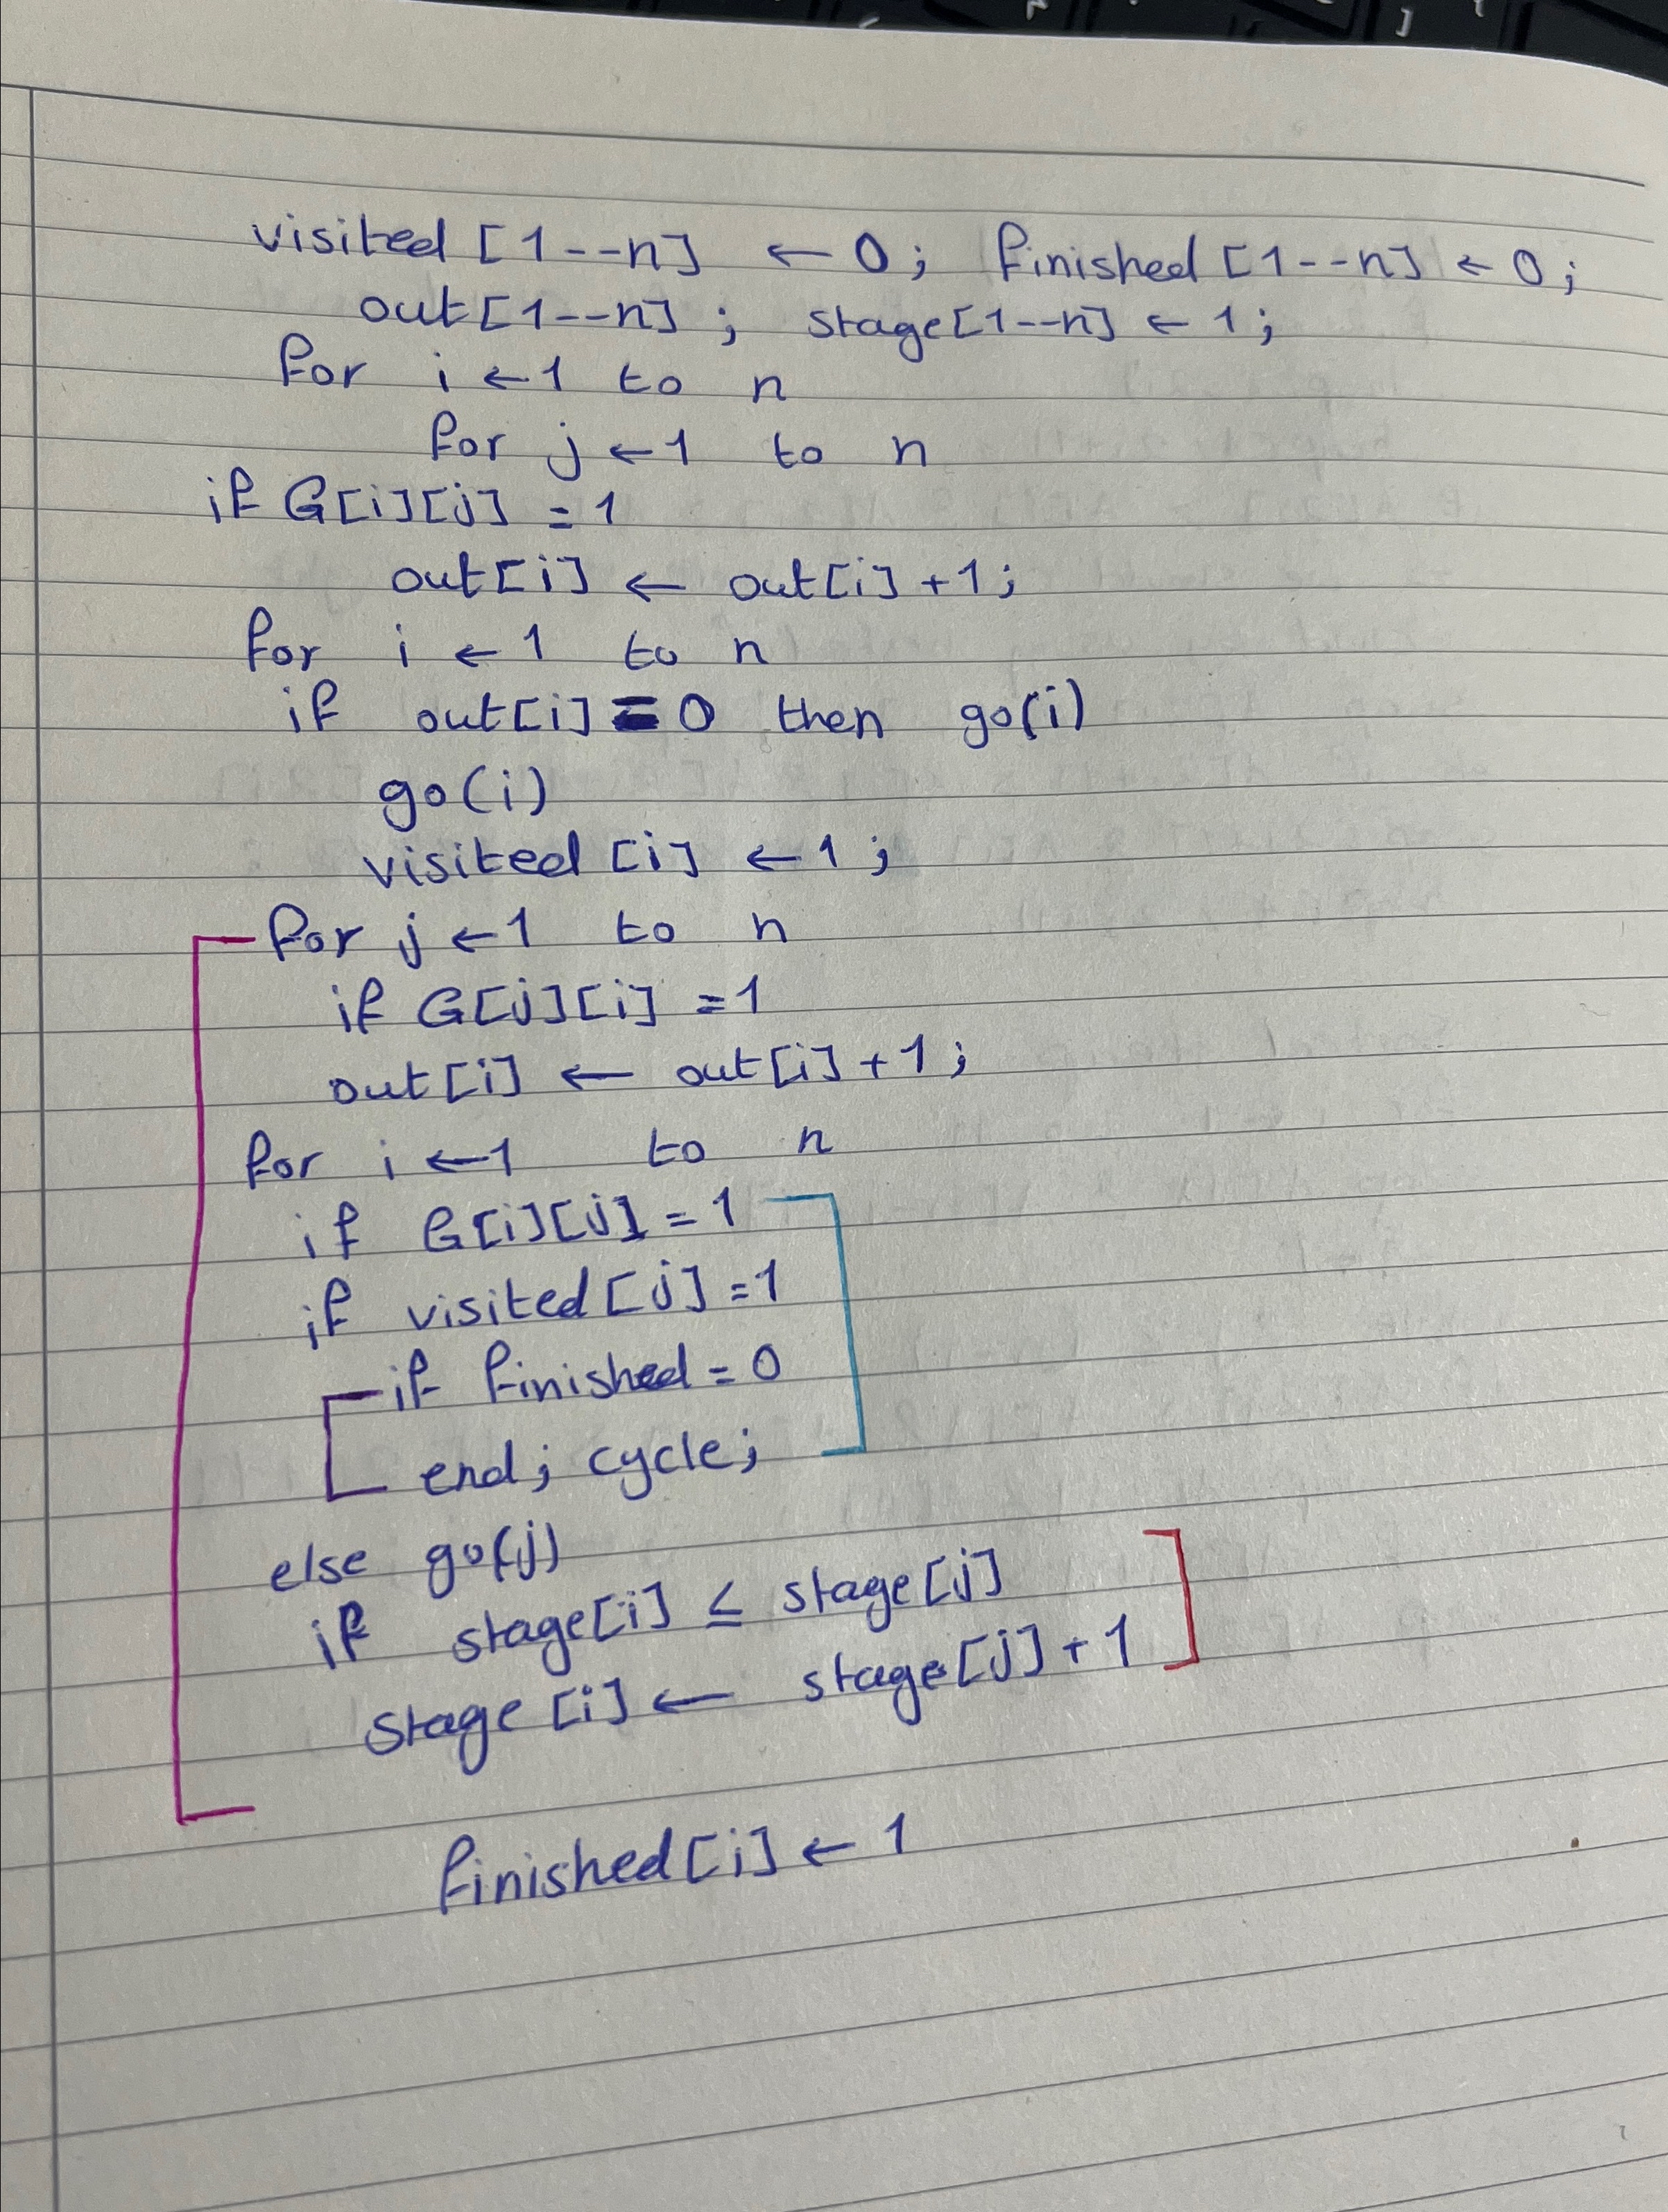 visited [1--n] ← 0; finished [1--n] ← 0;
out[1--n]; stage[1--n] ← 1;
for i ← 1 to n
for j ← 1 to n
if G[i][j] = 1
out[i] ← out[i] + 1;
for i ← 1 to n
if out[i] = 0 then go(i)
go(i)
visited [i] ← 1;
for j ← 1 to n
if G[j][i] = 1
out[i] ← out[i] + 1;
for i ← 1 to n
if G[i][j] = 1
if visited [j] = 1
if finished = 0
end; cycle;
else go(j)
if stage[i] ≤ stage[j]
stage [i] ← stage[j] + 1
finished[i] ← 1